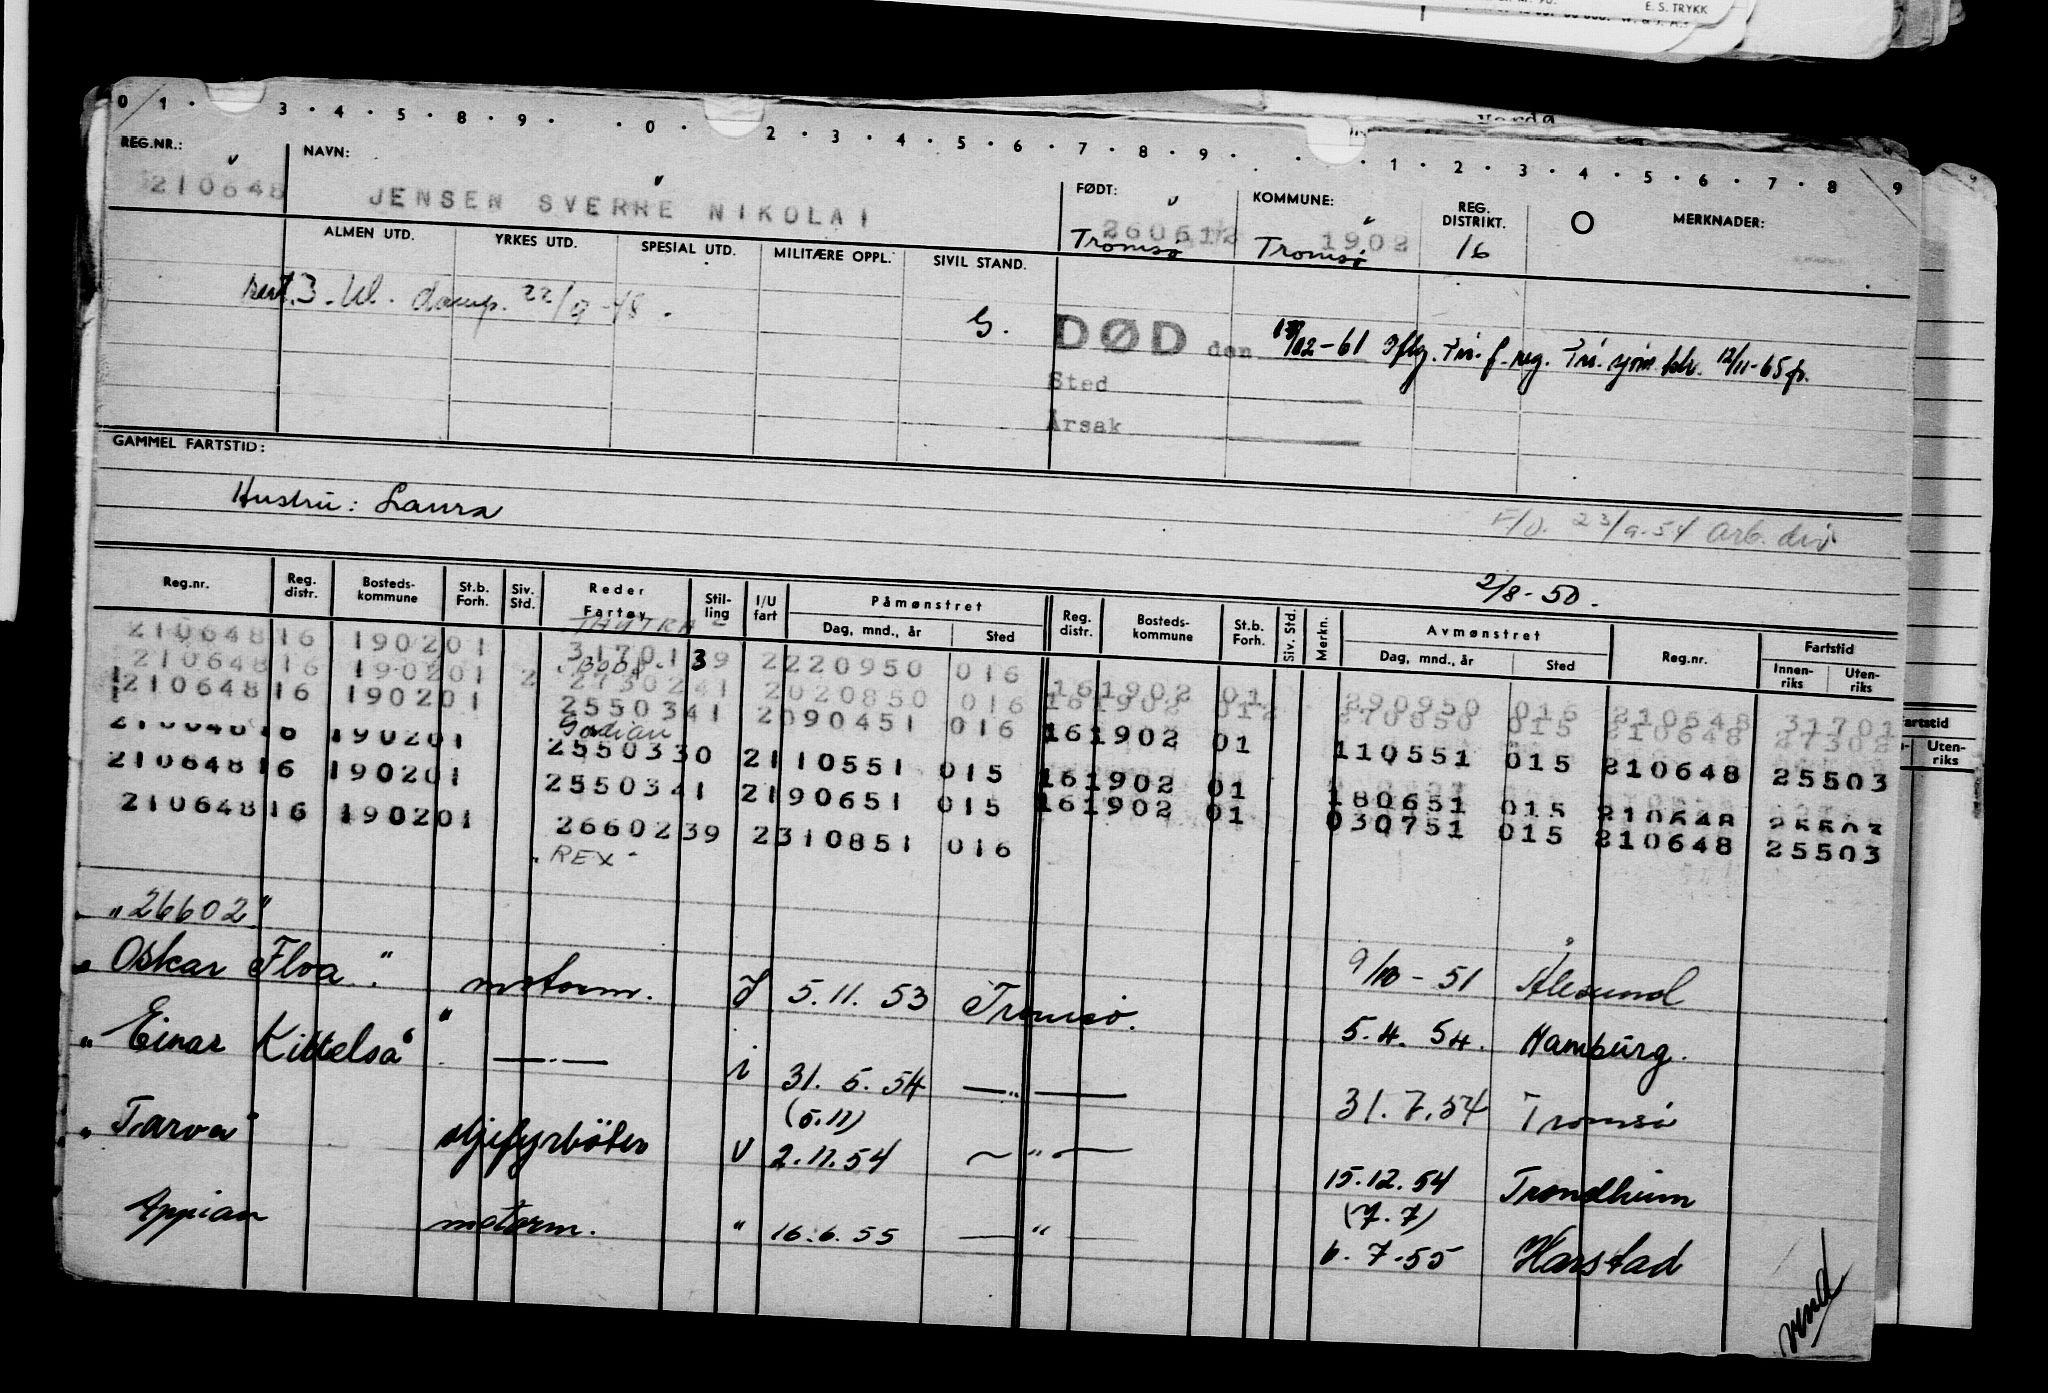 E. S. TRYKK
0 1 · 3 · 4 · 5 · 8 · 9 · · 0 · 2 · 3 · 4 · 5 · 6 · 7 · 8 · 9 · · 1 · 2 · 3 · 4 · 5 · 6 · 7 · 8 9
REG.NR.: NAVN: FØDT: KOMMUNE: REG. DISTRIKT. O MERKNADER:
210648 JENSEN SVERRE NIKOLAI 260612 1902
Tromsø Tromsø 16
ALMEN UTD. YRKES UTD. SPESIAL UTD. MILITÆRE OPPL. SIVIL STAND.
3. kl. damp. 22/9-48. G.
DØD den 12-61 Iflg. f. reg. 12/11-65
Sted
Årsak
GAMMEL FARTSTID:
Hustru: Laura
23/9-54 Arb. div
2/8-50.
Reg.nr. Reg. distr. Bosteds- kommune St.b. Forh. Siv. Std. Reder Fartøy Stil- ling I/U fart Påmønstret Dag, mnd., år Sted Reg. distr. Bosteds- kommune St.b. Forh. Siv. Std. Merkn. Avmønstret Dag, mnd., år Sted Reg.nr. Fartstid Innen- riks Uten- riks
TAUTRA
210648 16 1902 01 31701 39 2 220950 016
210648 16 1902 01 2 27302 41 2 020850 016 16 1902 01 290950 016 210648 31701
210648 16 1902 01 25503 41 2 090451 016 16 1902 01 270850 015 210648 27302
Godian
210648 16 1902 01 25503 30 2 110551 015 16 1902 01 110551 015 210648 25503
210648 16 1902 01 25503 41 2 190651 015 16 1902 01 180651 015 210648 25503
210648 16 1902 01 26602 39 2 310851 016 16 1902 01 030751 015 210648 25503
REX
"26602" 9/10-51 Ålesund
"Oskar Floa" motorm. I 5.11.53 Tromsø. 5.4.54. Hamburg.
"Einar Kittelsa" —.— i 31.5.54 —"— 31.7.54 Tromsø
(5.11)
"Tarva" oljefyrbøter U 2.11.54 —"— 15.12.54 Trondheim
(7.7)
Appian motorm. " 16.6.55 —"— 6.7.55 Harstad
vend
Fartstid
Uten-
riks